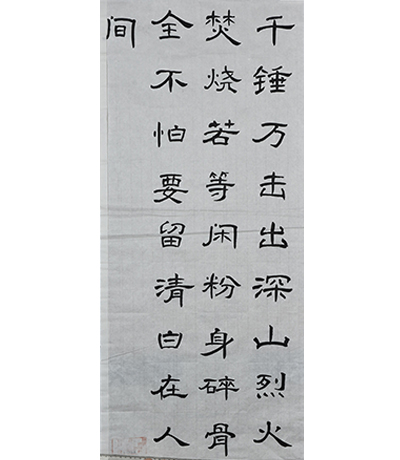 千锤万击出深山烈火
焚烧若等闲粉身碎骨
全不怕要留清白在人
间